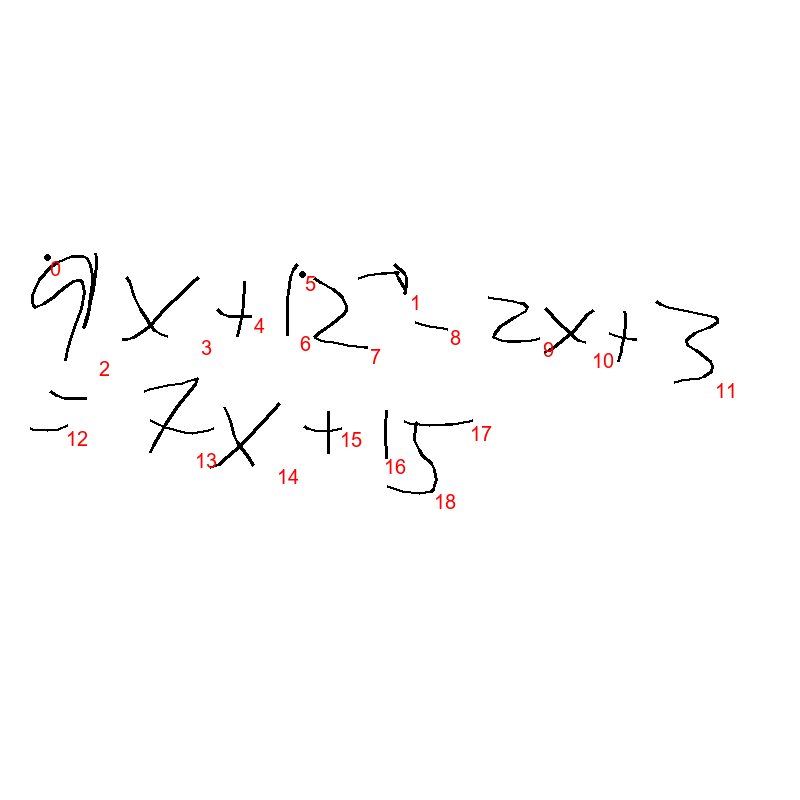 9x + 12 - 2x + 3
= 7x + 15
0 1 2 3 4 5 6 7 8 9 10 11 12 13 14 15 16 17 18